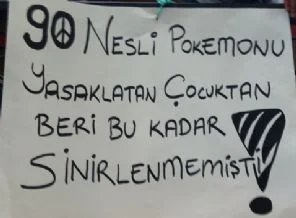 90 NESLİ POKEMONU
YASAKLATAN ÇOCUKTAN
BERİ BU KADAR
SİNİRLENMEMİŞTİ!